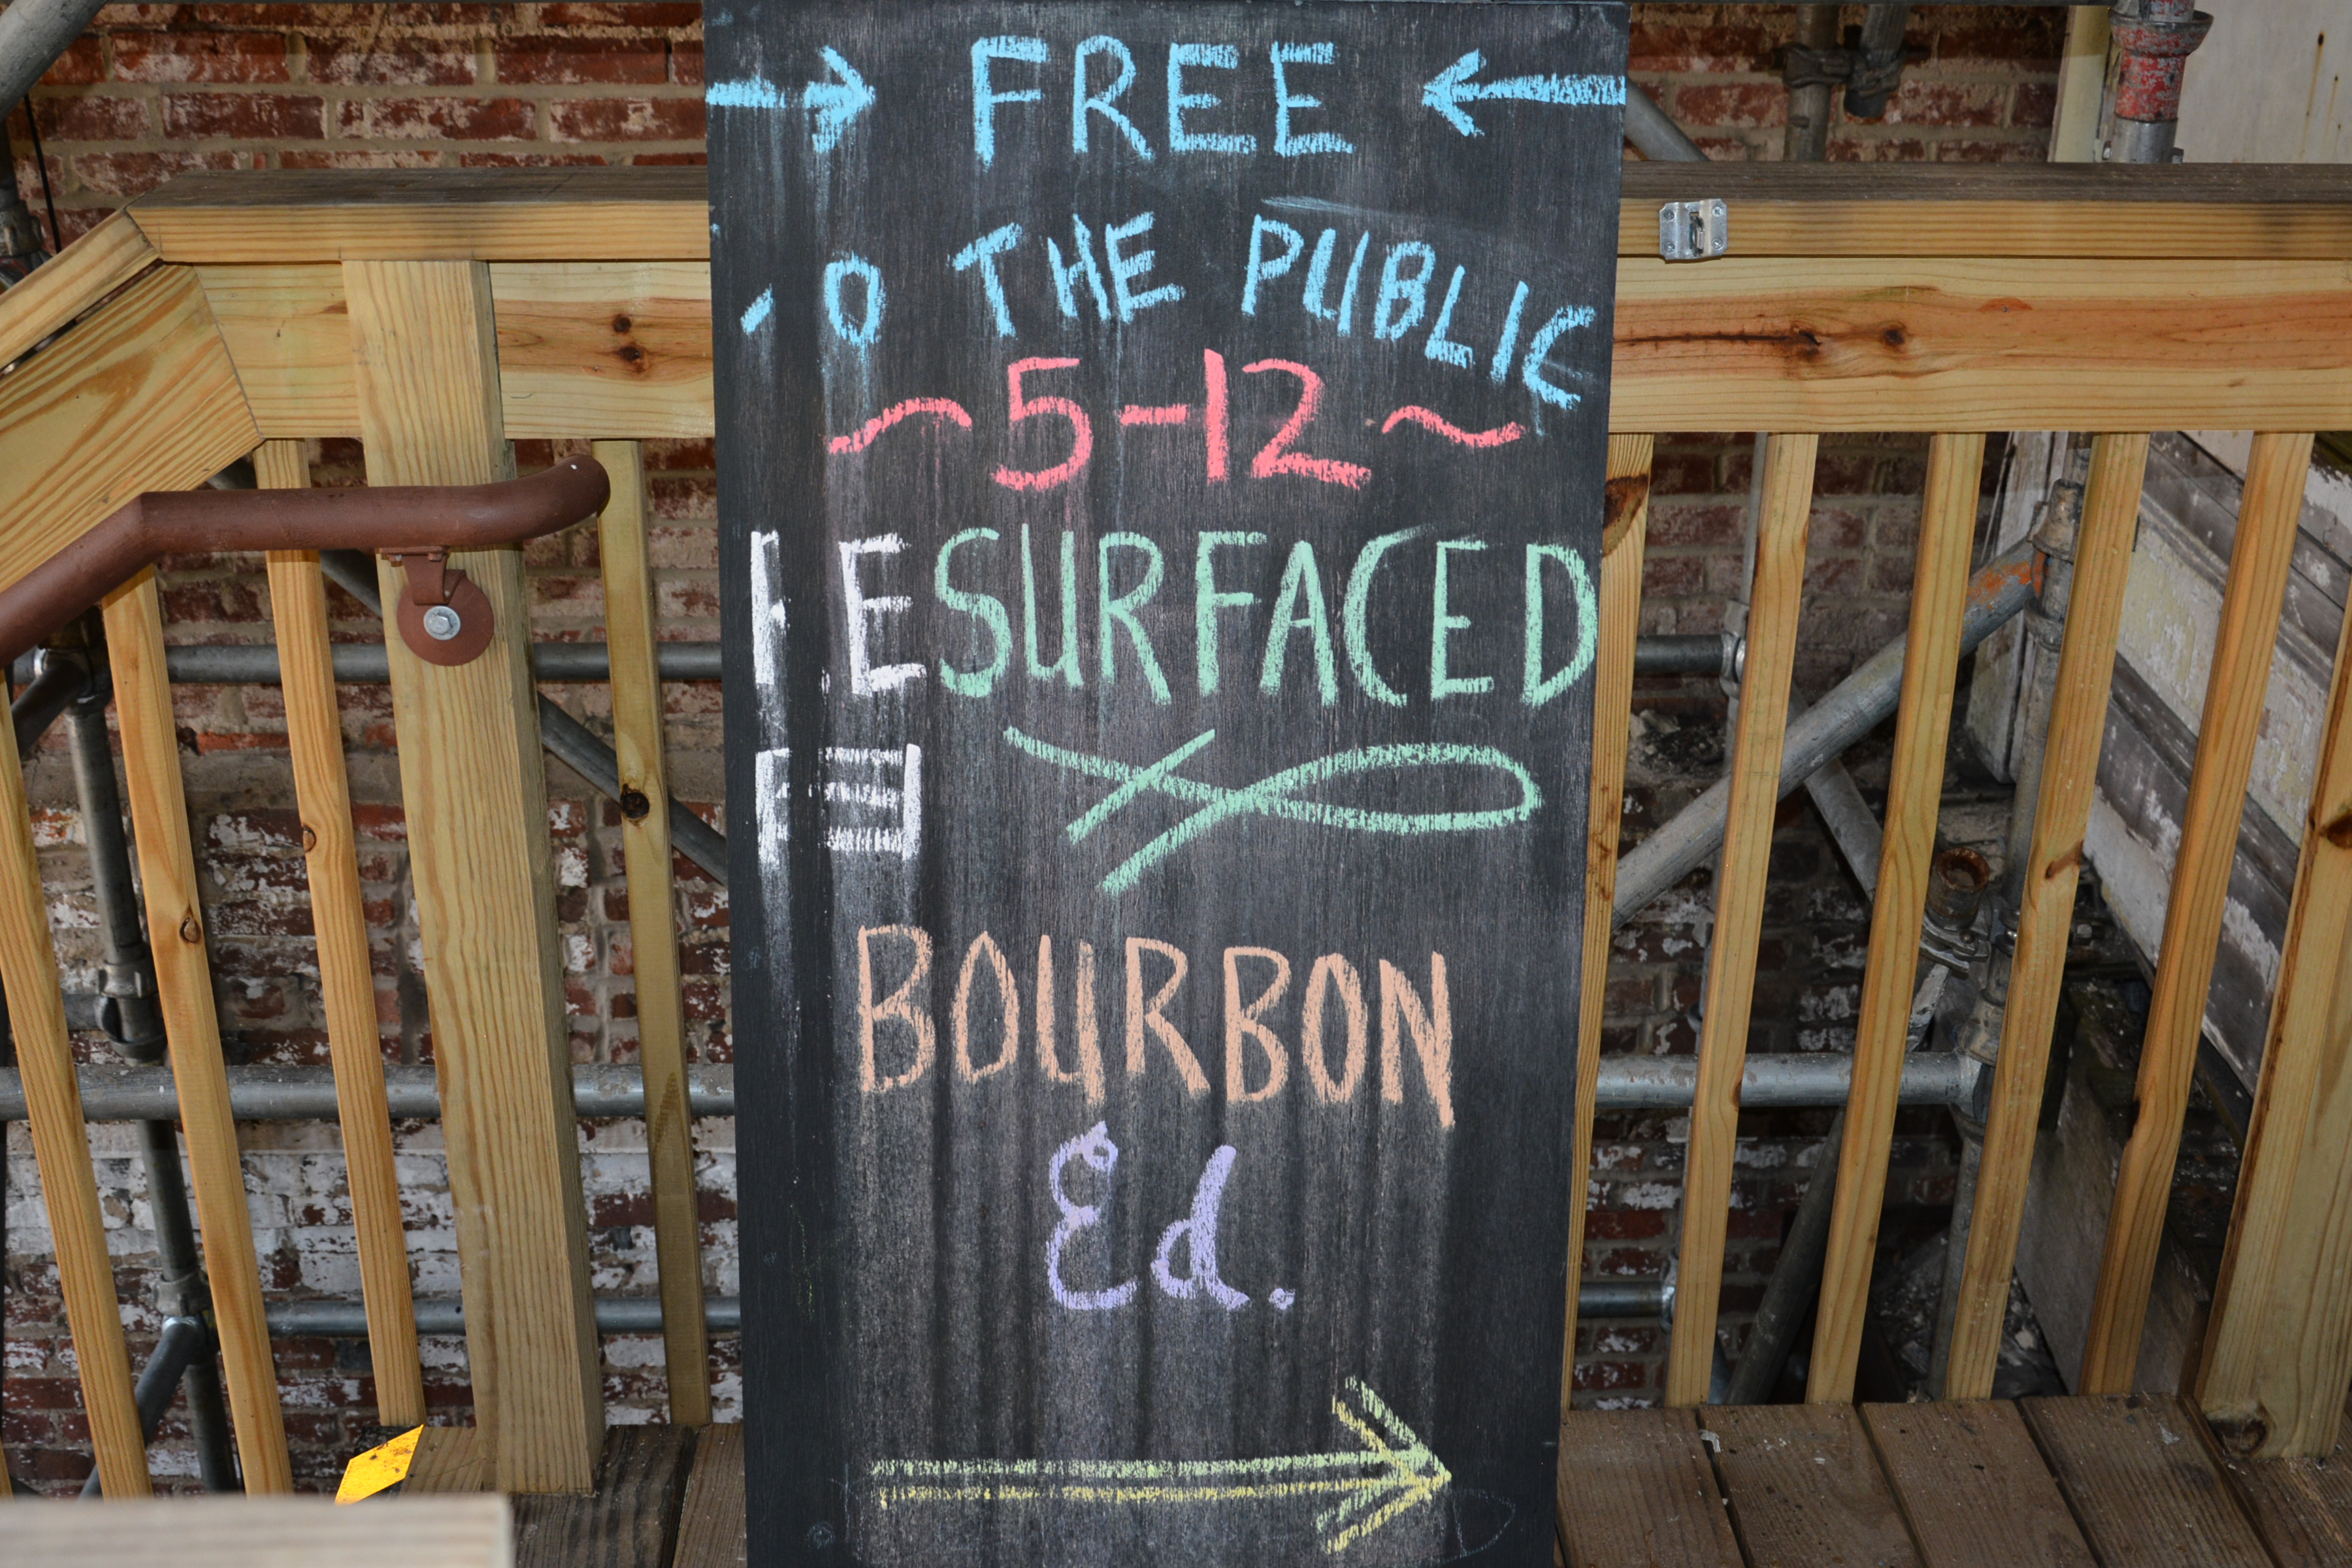 → FREE ←
TO THE PUBLIC
~ 5-12 ~
RESURFACED
BOURBON
Ed.